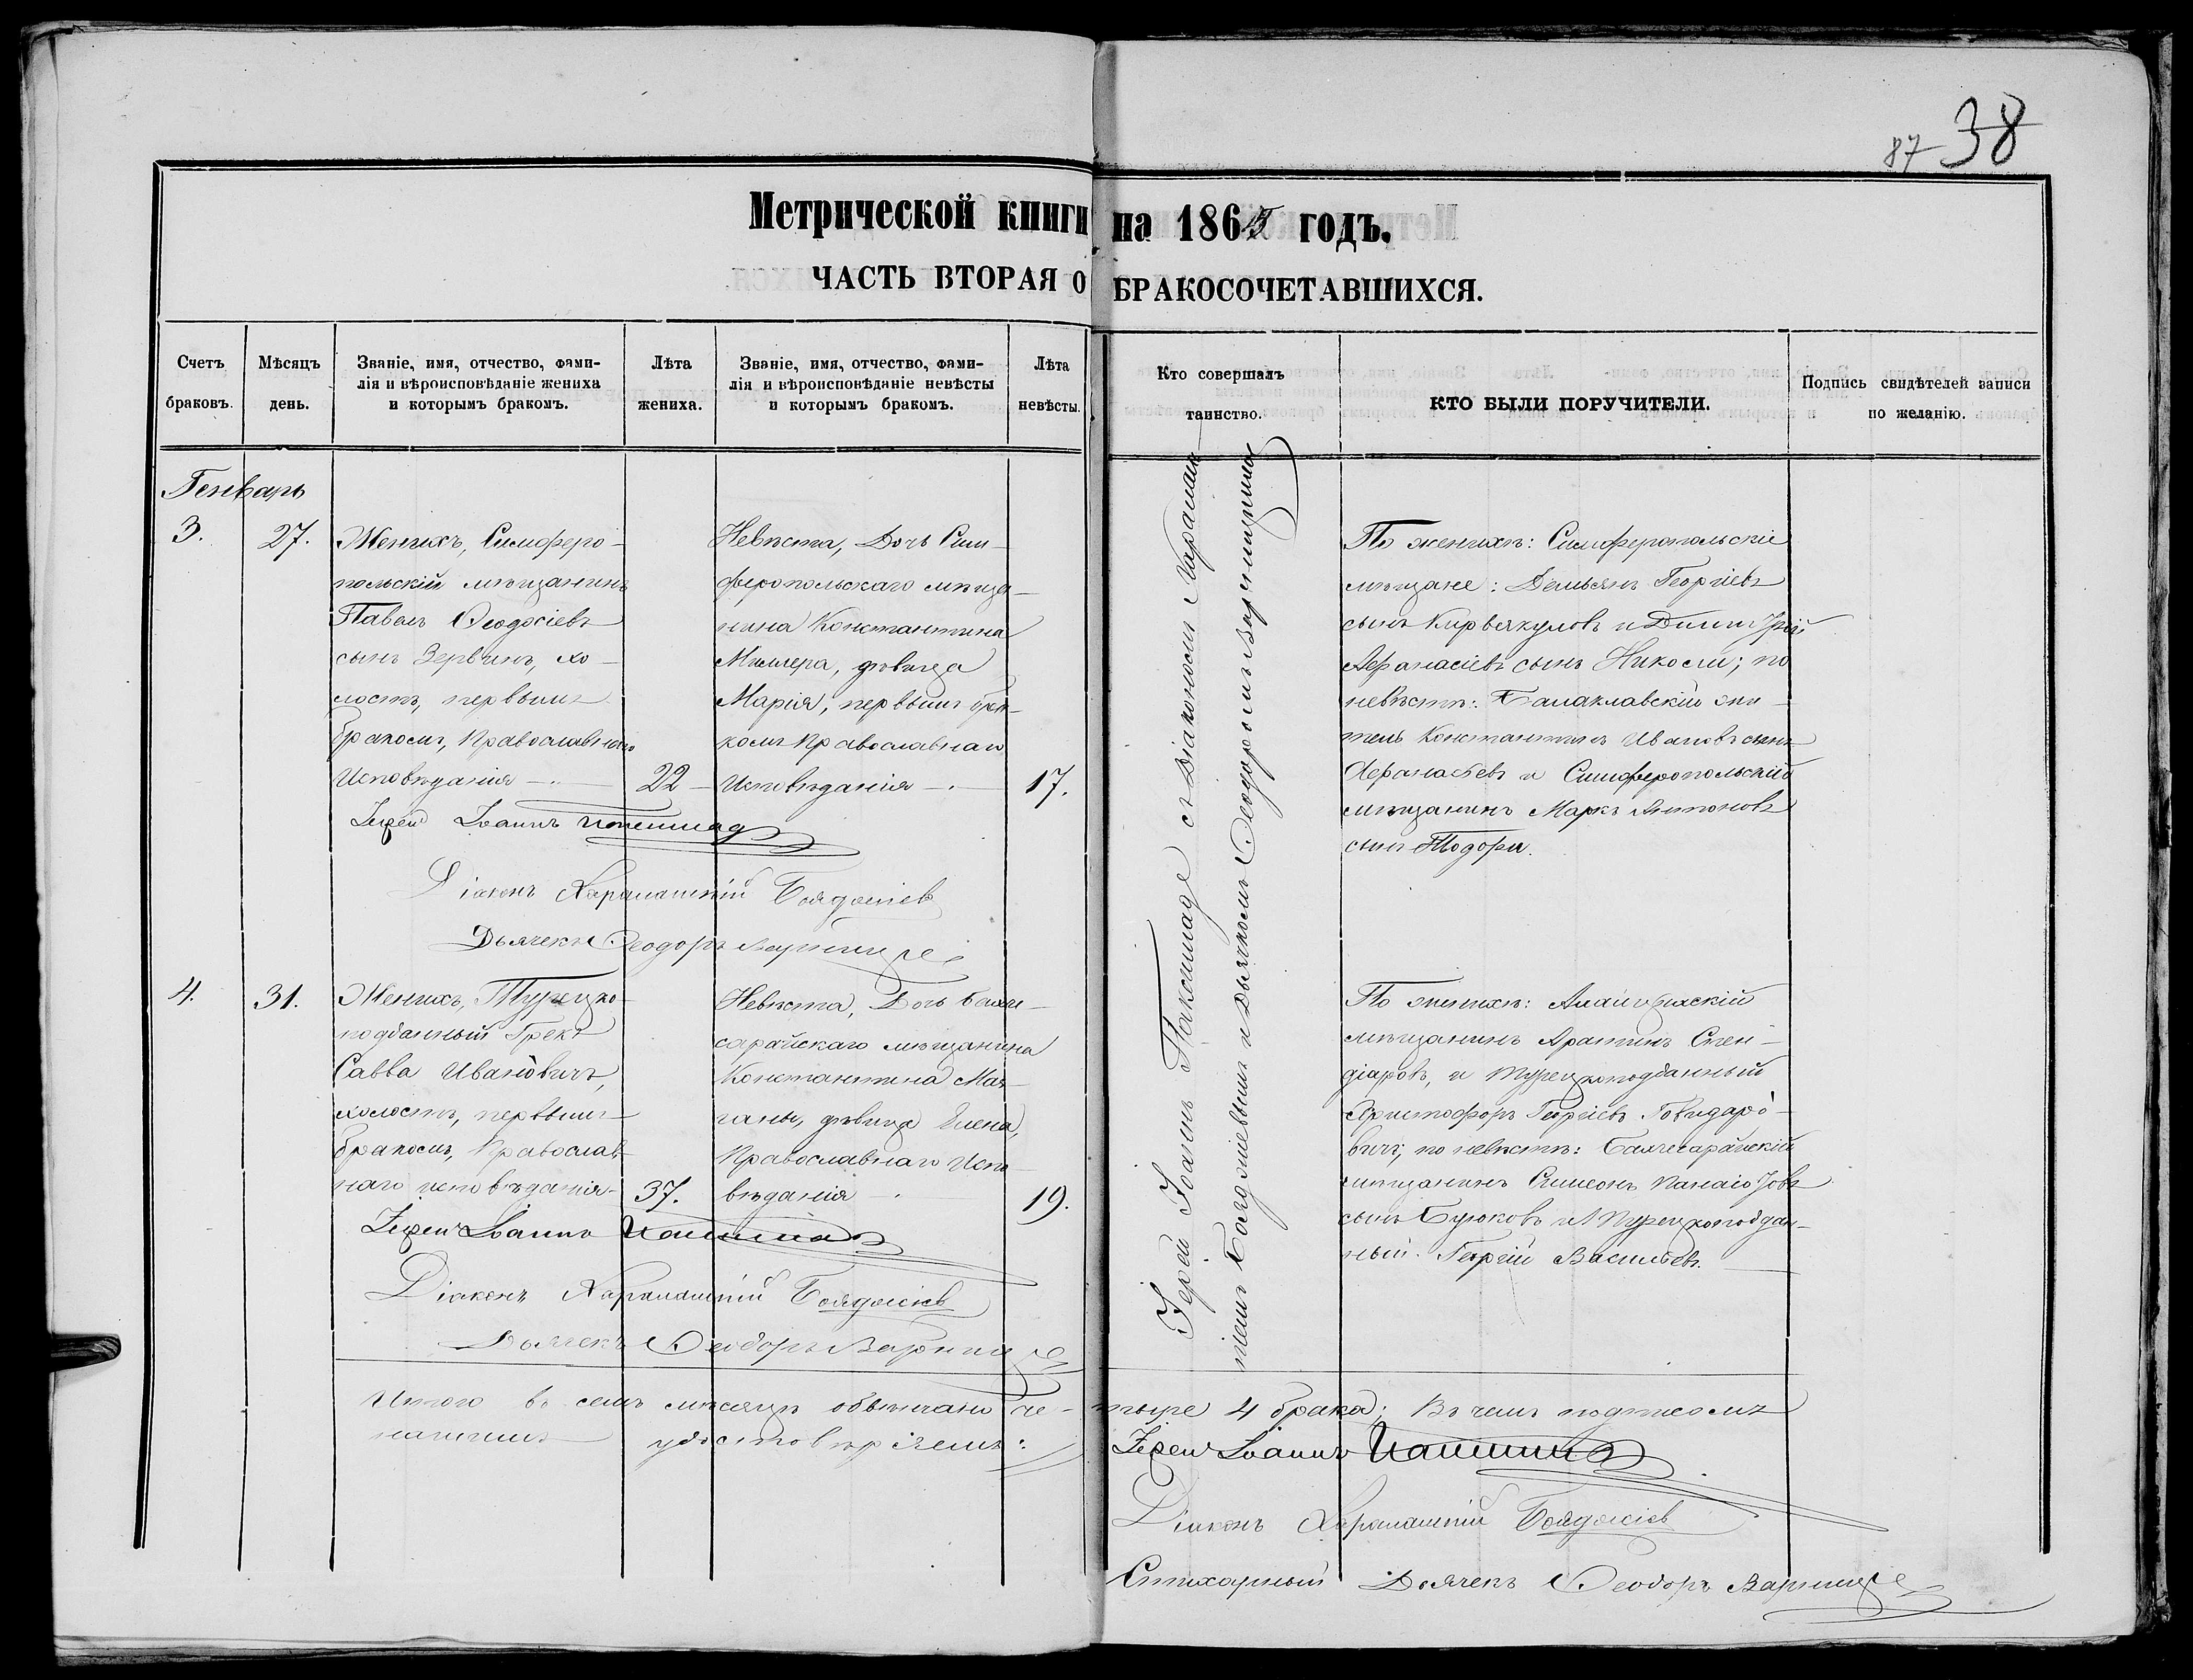 87 38
Метрической книги на 1865 годъ.
ЧАСТЬ ВТОРАЯ О БРАКОСОЧЕТАВШИХСЯ.
Счетъ
браковъ.
Мѣсяцъ
день.
Званіе, имя, отчество, фами-
лія и вѣроисповѣданіе жениха
и которымъ бракомъ.
Лѣта
жениха.
Званіе, имя, отчество, фами-
лія и вѣроисповѣданіе невѣсты
и которымъ бракомъ.
Лѣта
невѣсты.
Кто совершалъ
таинство.
КТО БЫЛИ ПОРУЧИТЕЛИ.
Подпись свидѣтелей записи
по желанію.
Генварь
3.
27.
Женихъ, Симферо-
польскій мѣщанинъ
Павелъ Ѳеодосіевъ
сынъ Зервинъ, хо-
лостъ, первымъ
бракомъ, Православнаго
Исповѣданія
22
Невѣста, Дочь Сим-
феропольскаго мѣща-
нина Константина
Миллера, дѣвица
Марія, первымъ бра-
комъ Православнаго
Исповѣданія
17.
Іерей Іоаннъ
Діаконъ Харалампій
Дьячекъ Ѳеодоръ
Іерей Іоаннъ съ Діакономъ Харалам-
піемъ и Дьячкомъ Ѳеодоромъ
По женихѣ: Симферопольскіе
мѣщане: Демьянъ Георгіевъ
сынъ и Димитрій
Аѳанасіевъ сынъ Николи; по
невѣстѣ: Балаклавскій жи-
тель Константинъ Ивановъ сынъ
Аѳанасьевъ и Симферопольскій
мѣщанинъ Маркъ Антоновъ
сынъ Тодори.
4.
31.
Женихъ, Турецко-
подданный Грекъ
Савва Ивановичъ,
холостъ, первымъ
бракомъ, Православ-
наго исповѣданія
37.
Невѣста, Дочь Бахчи-
сарайскаго мѣщанина
Константина Ман-
ганы, дѣвица Елена,
Православнаго Испо-
вѣданія
19.
Іерей Іоаннъ
Діаконъ Харалампій
Дьячекъ Ѳеодоръ
По женихѣ:
мѣщанинъ Спен-
діаровъ, и Турецкоподданный
Христофоръ Георгіевъ
вичъ; по невѣстѣ: Бахчисарайскій
мѣщанинъ Симеонъ Панаіотовъ
сынъ Буюковъ и Турецкоподдан-
ный Георгій Васильевъ.
Итого въ семъ мѣсяцѣ обвѣнчано че-тыре 4 брака; Въ чемъ подписомъ
нашимъ удостовѣряемъ: Іерей Іоаннъ
Діаконъ Харалампій
Стихарный Дьячекъ Ѳеодоръ